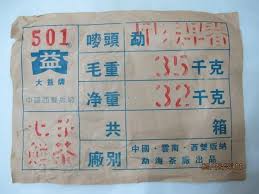 501 嘜頭 勐
益 毛重 35 千克
大益牌
中國西雙版納 净重 32 千克
七 共 箱
廠别 中國·雲南·西雙版納
勐海茶廠出品